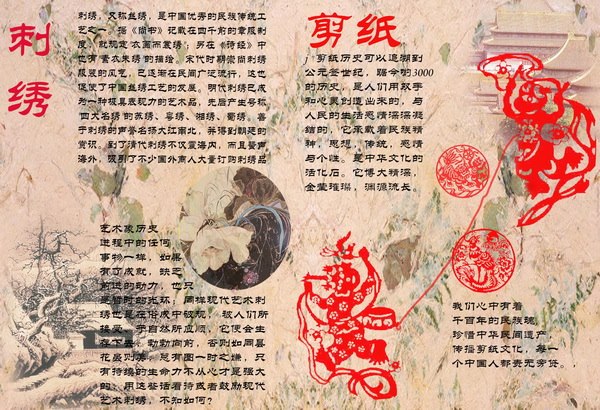 刺绣
刺绣，又称丝绣，是中国优秀的民族传统工
艺之一。据《尚书》记载在四千前的章服制
度，就规定"衣画而裳绣"；另在《诗经》中
也有"素衣朱绣"的描绘。宋代时期崇尚刺绣
服装的风气，已逐渐在民间广泛流行，这也
促使了中国丝绣工艺的发展。明代刺绣已成
为一种极具表现力的艺术品，先后产生号称
"四大名绣"的苏绣、粤绣、湘绣、蜀绣。善
于刺绣的声誉名扬大江南北，并得到朝廷的
赏识。到了清代刺绣不仅震海内，而且誉声
海外，吸引了不少国外商人大量订购刺绣品
艺术象历史
进程中的任何
事物一样，如果
有了成就，缺乏
前进的动力，也只
是暂时的光环；同样现代艺术刺
绣也是在俗成中破规，被人们所
接受，学自然所应顺，它便会生
存下去，勃勃向前，否则如同昙
花虽则美，总有图一时之嫌，只
有持续的生命力不从心才是强大
的，用这些话看待或者鼓励现代
艺术刺绣，不知如何？
剪纸
j 剪纸历史可以追溯到
公元叁世纪，距今明3000
的历史，是人们用双手
和心灵创造出来的，与
人民的生活感情深深凝
结的，它承载着民族精
神，思想，传统，感情
与个性。是中华文化的
活化石。它博大精深，
金莹璀璨，渊源流长。
，
我们心中有着
千百年的民族魂，
珍惜中华民间遗产，
传播剪纸文化，每一
个中国人都责无旁贷。，